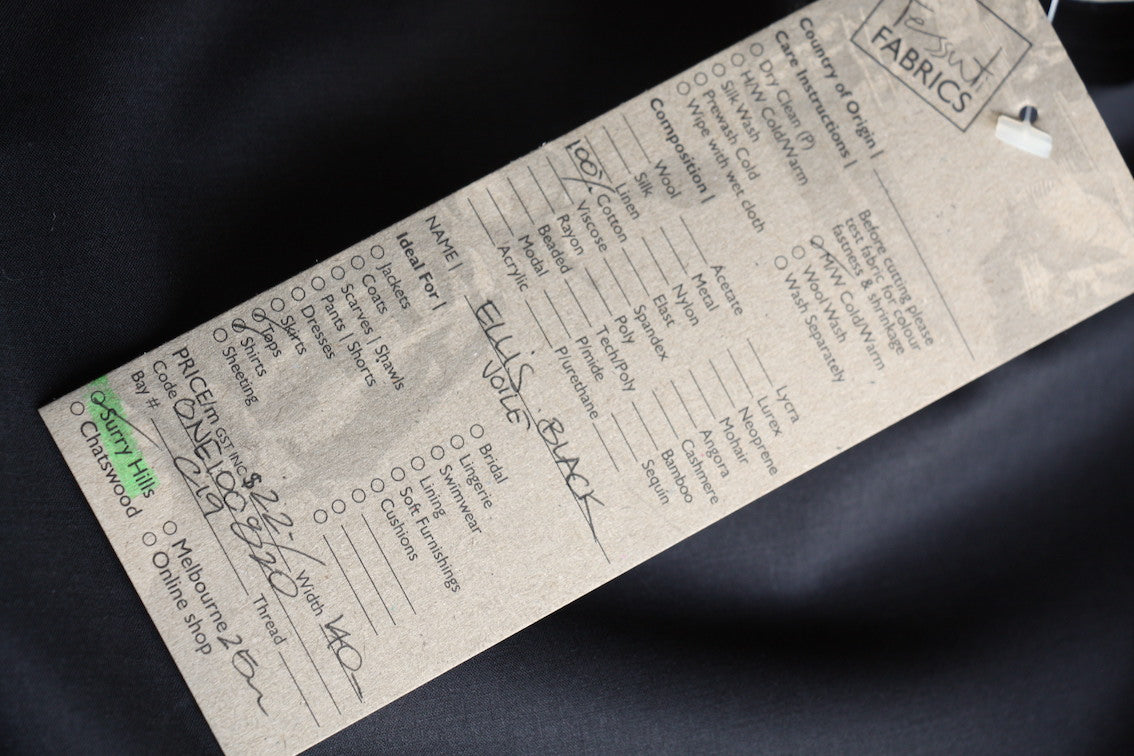 Tessuti
FABRICS
Country of Origin |
Care Instructions |
Dry Clean (P)
H/W Cold/Warm
Silk Wash
Prewash Cold
Wipe with wet cloth
Before cutting please
test fabric for colour
fastness & shrinkage
M/W Cold/Warm
Wool Wash
Wash Separately
Composition |
Wool
Silk
Linen
100% Cotton
Viscose
Rayon
Beaded
Modal
Acrylic
Acetate
Metal
Nylon
Elast
Spandex
Poly
Tech/Poly
P/mide
P/urethane
Lycra
Lurex
Neoprene
Mohair
Angora
Cashmere
Bamboo
Sequin
NAME | ELLIS BLACK
VOILE
Ideal For |
Jackets
Coats
Scarves | Shawls
Pants | Shorts
Dresses
Skirts
Tops
Shirts
Sheeting
Bridal
Lingerie
Swimwear
Lining
Soft Furnishings
Cushions
PRICE/m GST INC $22-/ Width 140
Code ONEL00820
Bay # C19 Thread
Surry Hills
Chatswood
Melbourne 25m
Online shop